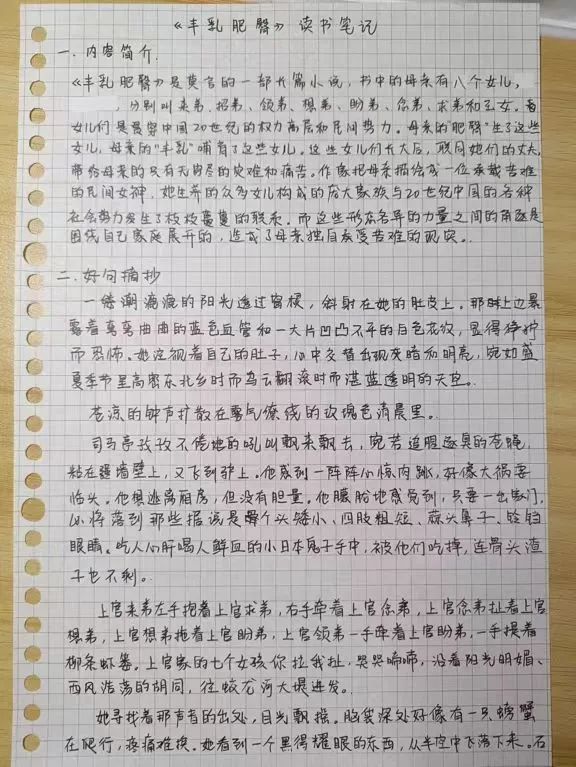 《丰乳肥臀》读书笔记
一.内容简介.
《丰乳肥臀》是莫言的一部长篇小说,书中的母亲有八个女儿,
,分别叫来弟、招弟、领弟、想弟、盼弟、念弟、求弟和玉女。
女儿们是贯穿中国20世纪的权力高层和民间势力。母亲的"肥臀"生了这些
女儿,母亲的"丰乳"哺育了这些女儿。这些女儿们长大后,联同她们的丈夫,
带给母亲的只有无穷尽的灾难和痛苦。作家把母亲描绘成一位承载苦难
的民间女神,她生养的众多女儿构成的庞大家族与20世纪中国的各种
社会势力发生了枝枝蔓蔓的联系。而这些形态各异的力量之间的角逐是
围绕自己家庭展开的,造成了母亲独自承受苦难的现实。
二.好句摘抄
一缕潮漉漉的阳光透过窗棂,斜射在她的肚皮上。那上边暴
露着弯弯曲曲的蓝色血管和一大片凹凸不平的白色花纹,显得狰狞
而恐怖。她注视着自己的肚子,心中交替出现灰暗和明亮,宛如盛
夏季节里高密东北乡时而乌云翻滚时而湛蓝透明的天空。
苍凉的钟声扩散在雾气缭绕的玫瑰色清晨里。
司马亭孜孜不倦地的吼叫飘来飘去,宛若追腥逐臭的苍蝇,
粘在墙壁上,又飞到驴上。他感到一阵阵心惊肉跳,好像大祸要
临头。他想逃离厢房,但没有胆量。他朦胧地感觉到,只要一出家门,
必将落到那些据说是个头矮小、四肢粗短、蒜头鼻子、铃铛
眼睛。吃人心肝喝人鲜血的小日本鬼子手中,被他们吃掉,连骨头渣
子也不剩。
上官来弟左手抱着上官求弟,右手牵着上官念弟,上官念弟扯着上官
想弟,上官想弟拖着上官盼弟,上官领弟一手牵着上官盼弟,一手提着
柳条虾篓。上官家的七个女孩你拉我扯,哭哭啼啼,沿着阳光明媚、
西风浩荡的胡同,往蛟龙河大堤进发。
她寻找着那声音的出处,目光飘摇。脑袋深处好像有一只螃蟹
在爬行,疼痛难挨。她看到一个黑得耀眼的东西,从半空中飞落下来。石